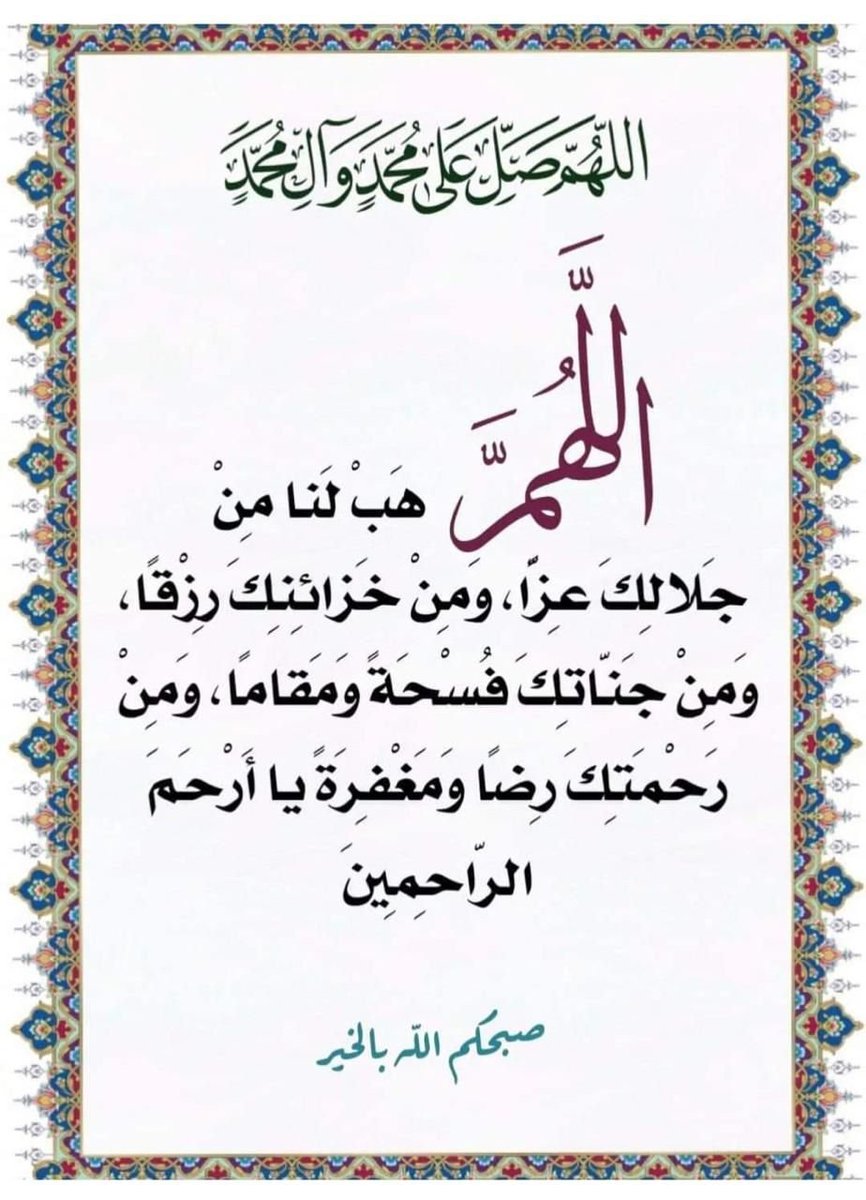 اللّهُمَّ صَلِّ عَلى مُحَمَّدٍ وَآلِ مُحَمَّدٍ
اللَّهُمَّ هَبْ لَنا مِنْ
جَلالِكَ عِزّاً، وَمِنْ خَزائِنِكَ رِزْقًا،
وَمِنْ جَنّاتِكَ فُسْحَةً وَمَقامًا، وَمِنْ
رَحْمَتِكَ رِضًا وَمَغْفِرَةً يا أَرْحَمَ
الرّاحِمِينَ
صبحكم اللّه بالخير